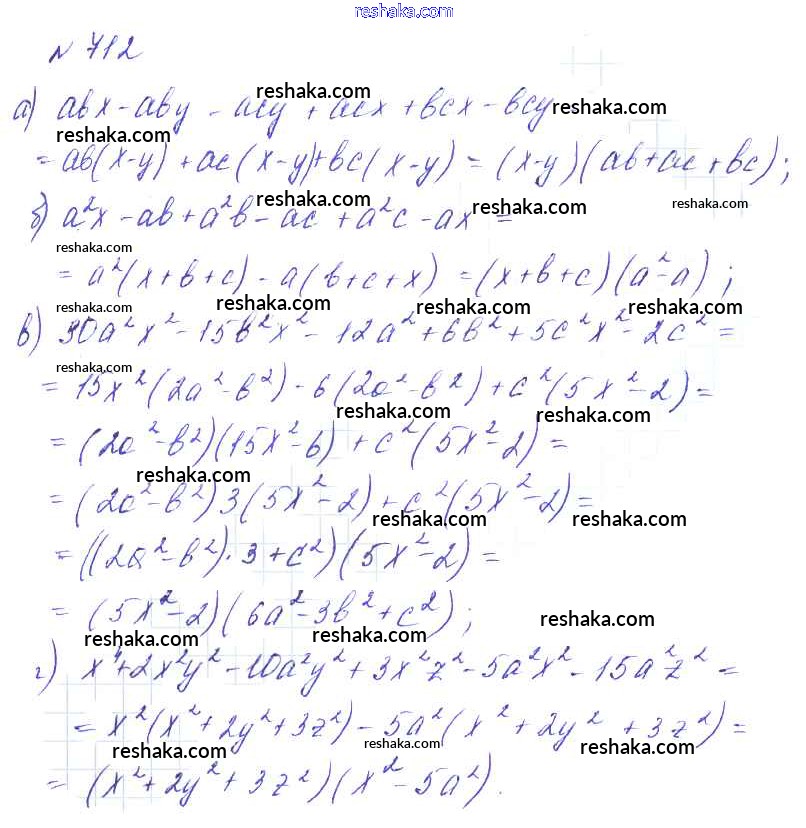 reshaka.com
N 712
а) abx - aby - acy + acx + bcx - bcy
reshaka.com reshaka.com
reshaka.com
= ab(x-y) + ac(x-y) + bc(x-y) = (x-y)(ab+ac+bc);
б) a²x - ab + a²b - ac + a²c - ax =
reshaka.com reshaka.com
reshaka.com
= a²(x+b+c) - a(b+c+x) = (x+b+c)(a²-a);
reshaka.com reshaka.com reshaka.com
в) 30a²x² - 15b²x² - 12a² + 6b² + 5c²x² - 2c² =
reshaka.com
= 15x²(2a²-b²) - 6(2a²-b²) + c²(5x²-2) =
reshaka.com reshaka.com
= (2a²-b²)(15x²-6) + c²(5x²-2) =
reshaka.com
= (2a²-b²)3(5x²-2) + c²(5x²-2) =
reshaka.com reshaka.com
= ((2a²-b²)·3+c²)(5x²-2) =
= (5x²-2)(6a²-3b²+c²);
reshaka.com reshaka.com reshaka.com
г) x⁴ + 2x²y² - 10a²y² + 3x²z² - 5a²x² - 15a²z² =
= x²(x²+2y²+3z²) - 5a²(x²+2y²+3z²) =
reshaka.com reshaka.com reshaka.com
= (x²+2y²+3z²)(x²-5a²).